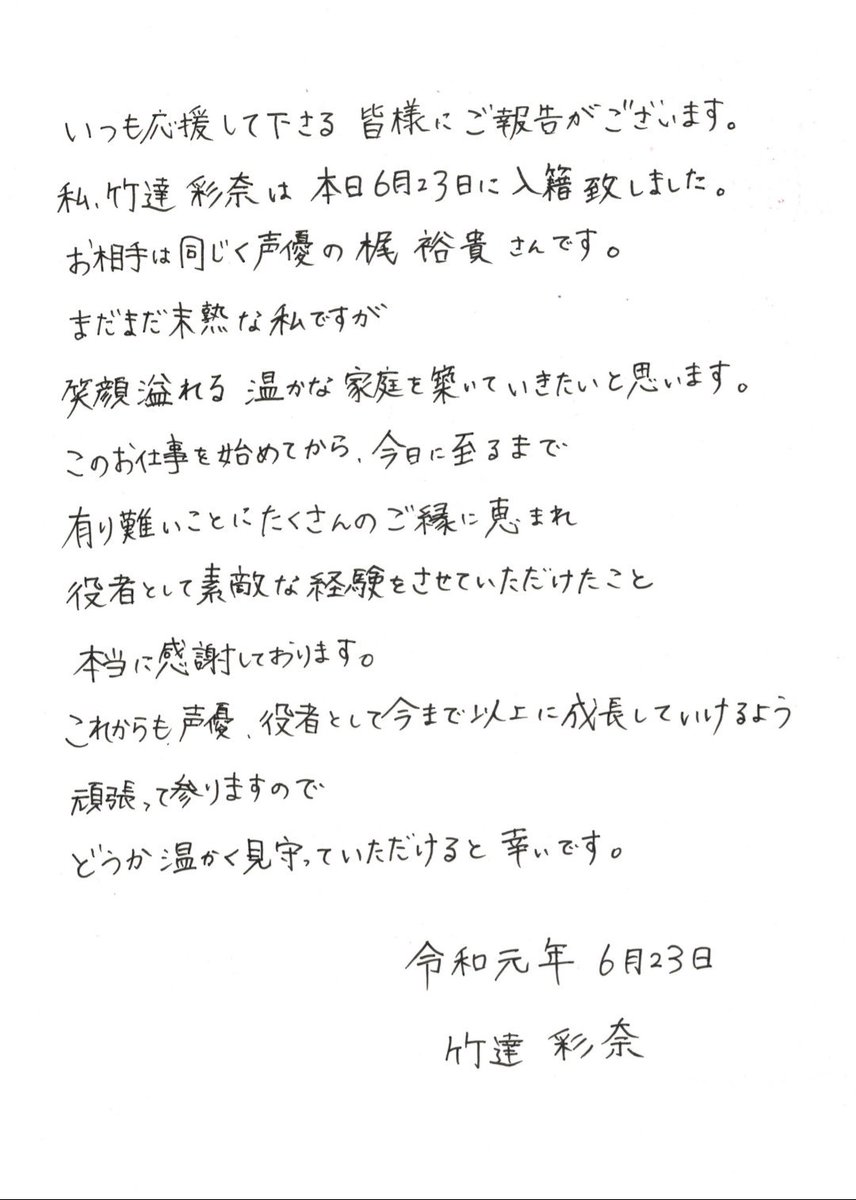 いつも応援して下さる 皆様にご報告がございます。
私、竹達 彩奈は 本日6月23日に入籍致しました。
お相手は同じく声優の 梶 裕貴さんです。
まだまだ未熟な私ですが
笑顔溢れる 温かな家庭を築いていきたいと思います。
このお仕事を始めてから、今日に至るまで
有り難いことにたくさんのご縁に恵まれ
役者として素敵な経験をさせていただけたこと
本当に感謝しております。
これからも、声優、役者として今まで以上に成長していけるよう
頑張って参りますので
どうか温かく見守っていただけると 幸いです。
令和元年 6月23日
竹達 彩奈